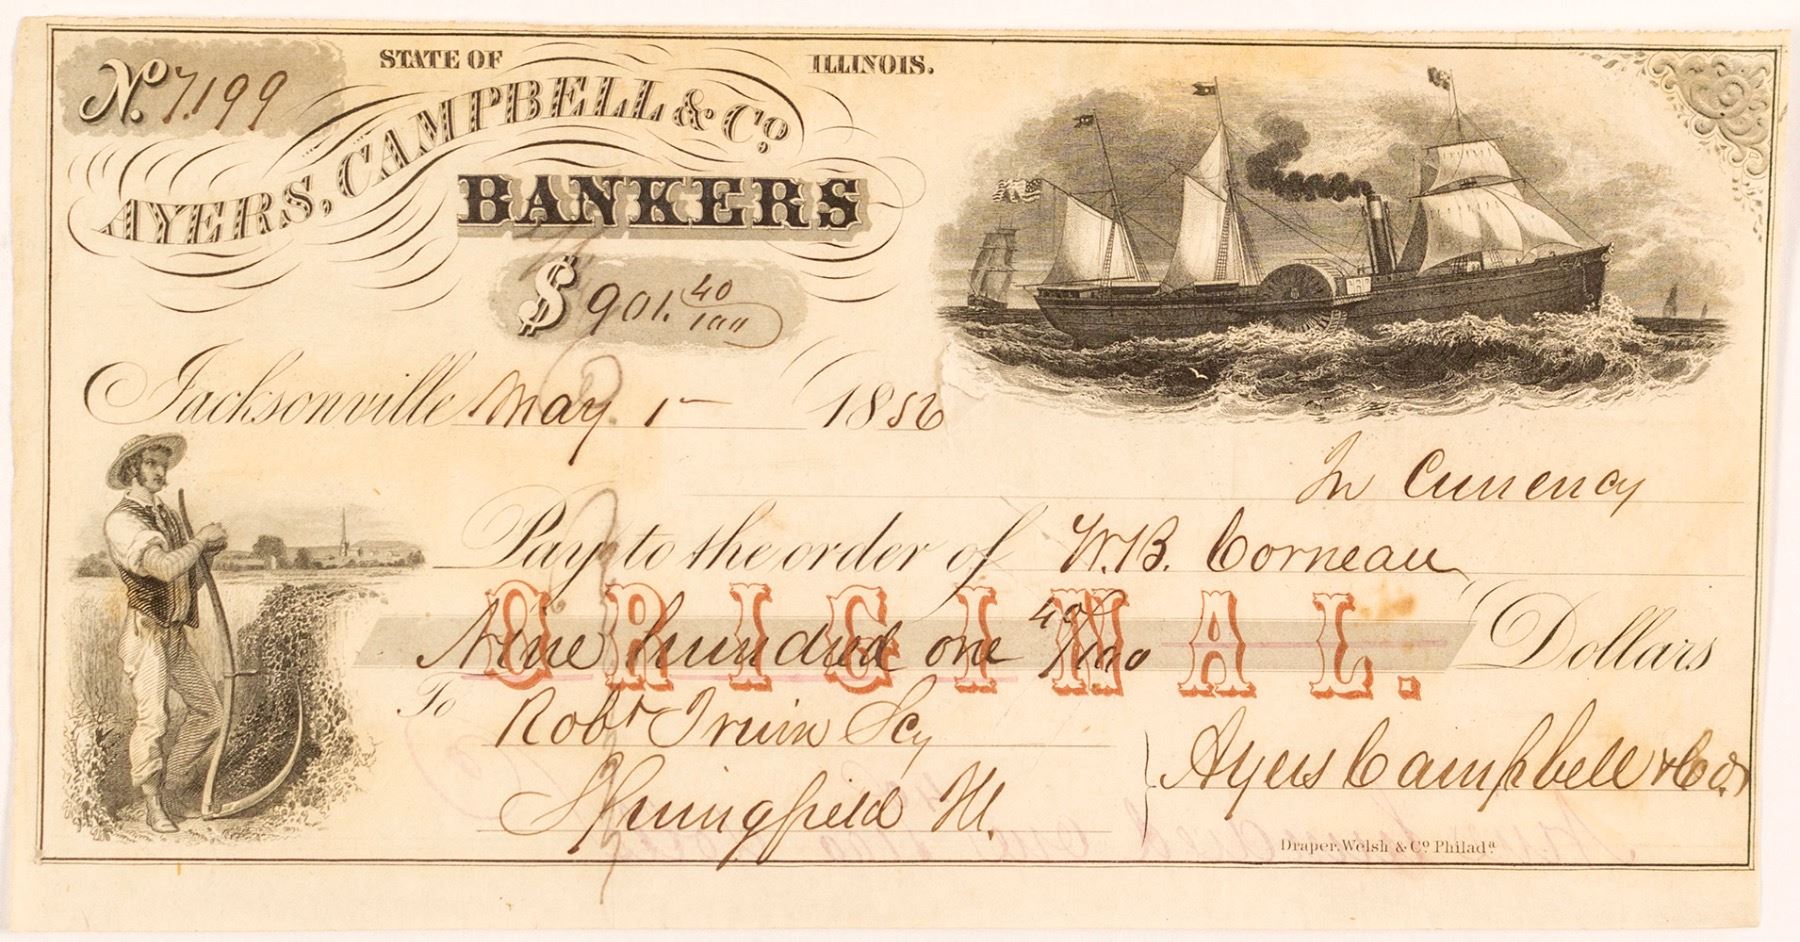 No. 7.199
STATE OF ILLINOIS.
AYERS, CAMPBELL & Co.
BANKERS
$ 901. 40/100
Jacksonville May 1 – 1856
In Currency
Pay to the order of W.B. Corneau
Nine hundred one 40/100 Dollars
ORIGINAL.
To Robt Irwin Scy
Springfield Ill.
Ayers Campbell & Co.
Draper, Welsh & Co. Philada.